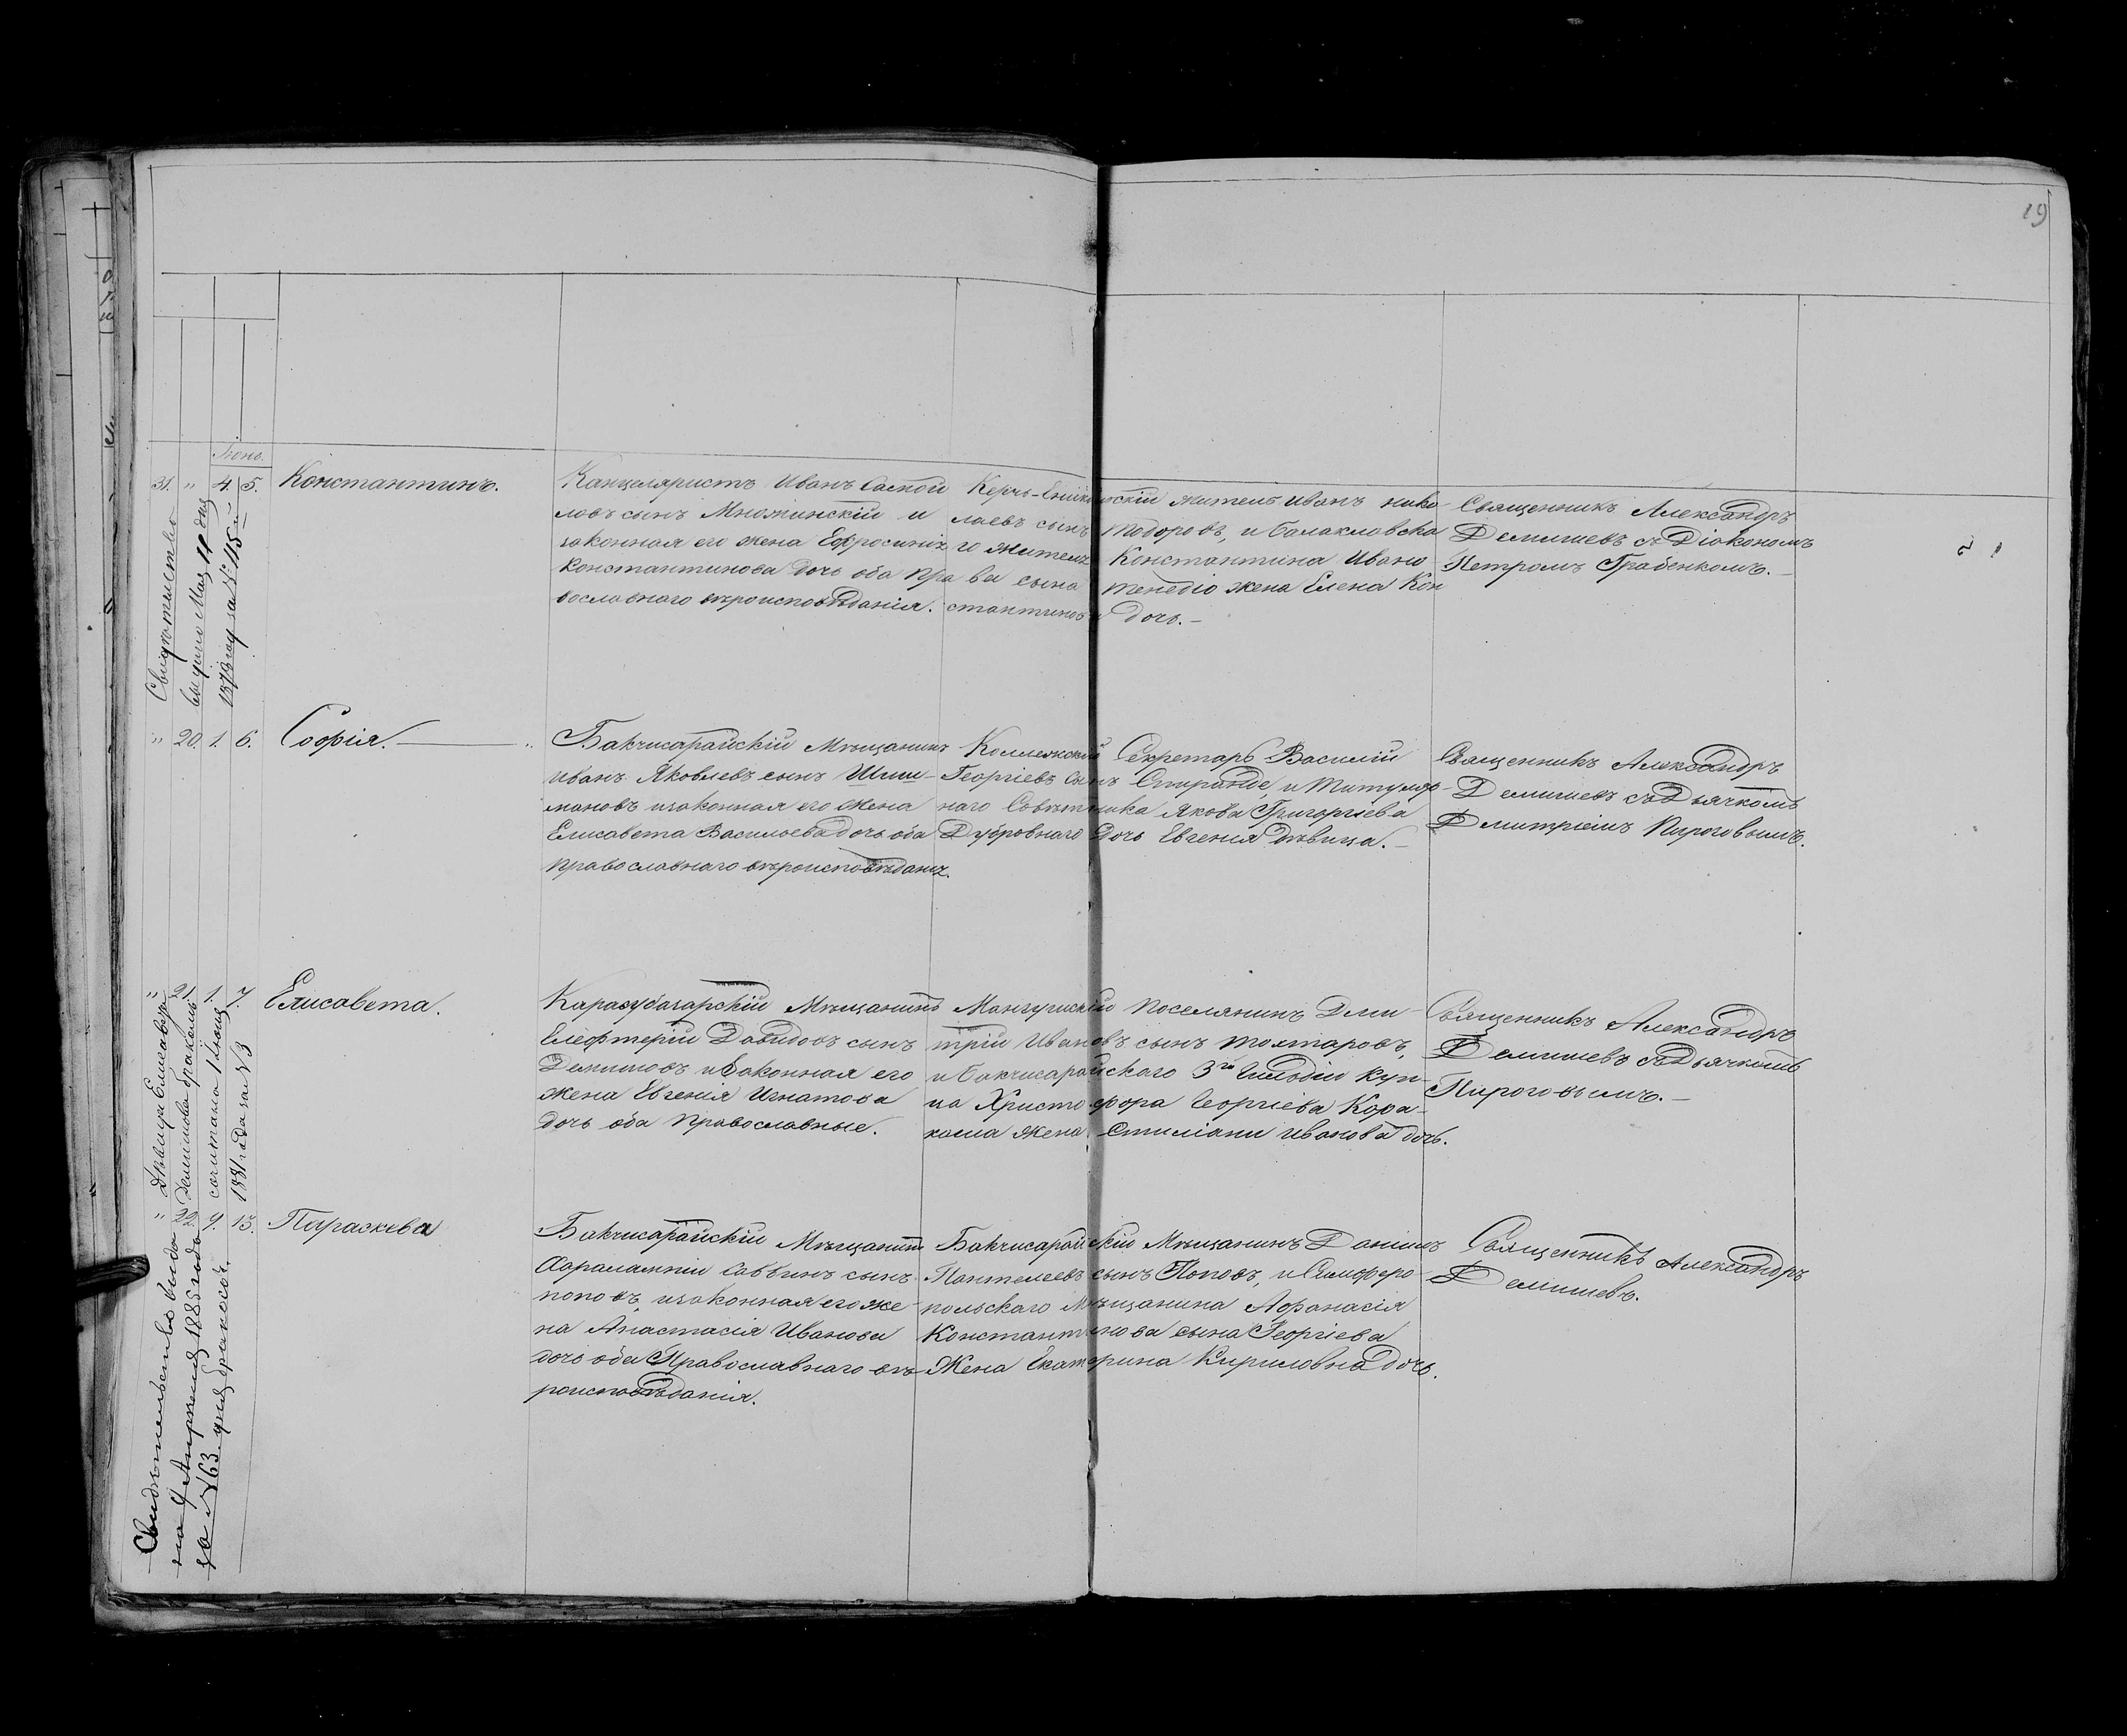 19
Іюнь.
31. " 4. 5. Константинъ.
Канцеляристъ Иванъ
ловъ сынъ Множинскій и
законная его жена Ефросинія
Константинова дочь оба пра
вославнаго вѣроисповѣданія.
Керчь-Ениколь скій житель Иванъ Нико
лаевъ сынъ Тодоровъ, и Балаклавска
го жителя Константина Ивано
ва сына Тенедіо жена Елена Кон
стантинова дочь.
Священникъ Александръ
Демишевъ съ Діакономъ
Петромъ Грабенкомъ.
Свидетельство
выдано Мая 11 дня
за № 115 й
" 20. 1. 6. Софія.
Бакчисарайскій Мѣщанинъ
Иванъ Яковлевъ сынъ Шиш-
мановъ изаконная его жена
Елисавета Васильева дочь оба
православнаго вѣроисповѣданія.
Коллежскій Секретарь Василій
Георгіевъ Сынъ Спиранде, и Титуляр-
наго Совѣтника Якова Григоріева
Дубровнаго Дочь Евгенія Дѣвица.
Священникъ Александръ
Демишевъ съ Дьячкомъ
Дмитріемъ Пироговымъ.
" 21. 1. 7. Елисавета.
Карасубазарскій Мѣщанинъ
Елефтерій Давидовъ сынъ
Демишовъ изаконная его
жена Евгенія Игнатова
дочь оба Православные.
Мангушскій поселянинъ Дми-
трій Ивановъ сынъ Тохтаровъ,
и Бакчисарайскаго 3го Гильдіи куп-
ца Христофора Георгіева Кора-
жена Стиліани Иванова дочь.
Священникъ Александръ
Демишевъ съ Дьячкомъ
Пироговымъ.
Дѣвица Елисавета
Демишова бракомъ
сочитана 1 Іюня
1881 года за №3
" 22. 9. 13. Параскева
Бакчисарайскій Мѣщанинъ
Харалампій Саввинъ сынъ
поповъ, изаконная его же-
на Анастасія Иванова
дочь оба Православнаго вѣ-
роисповѣданія.
Бакчисарайскій Мѣщанинъ Даніилъ
Пантелеевъ сынъ Поповъ, и Симферо-
польскаго Мѣщанина Афанасія
Константинова сына Георгіева
Жена Екатерина Кириловна Дочь.
Священникъ Александръ
Демишевъ.
Свидетельство выдано
на 9 Апреля 1885 года
за №63 для браковоч.